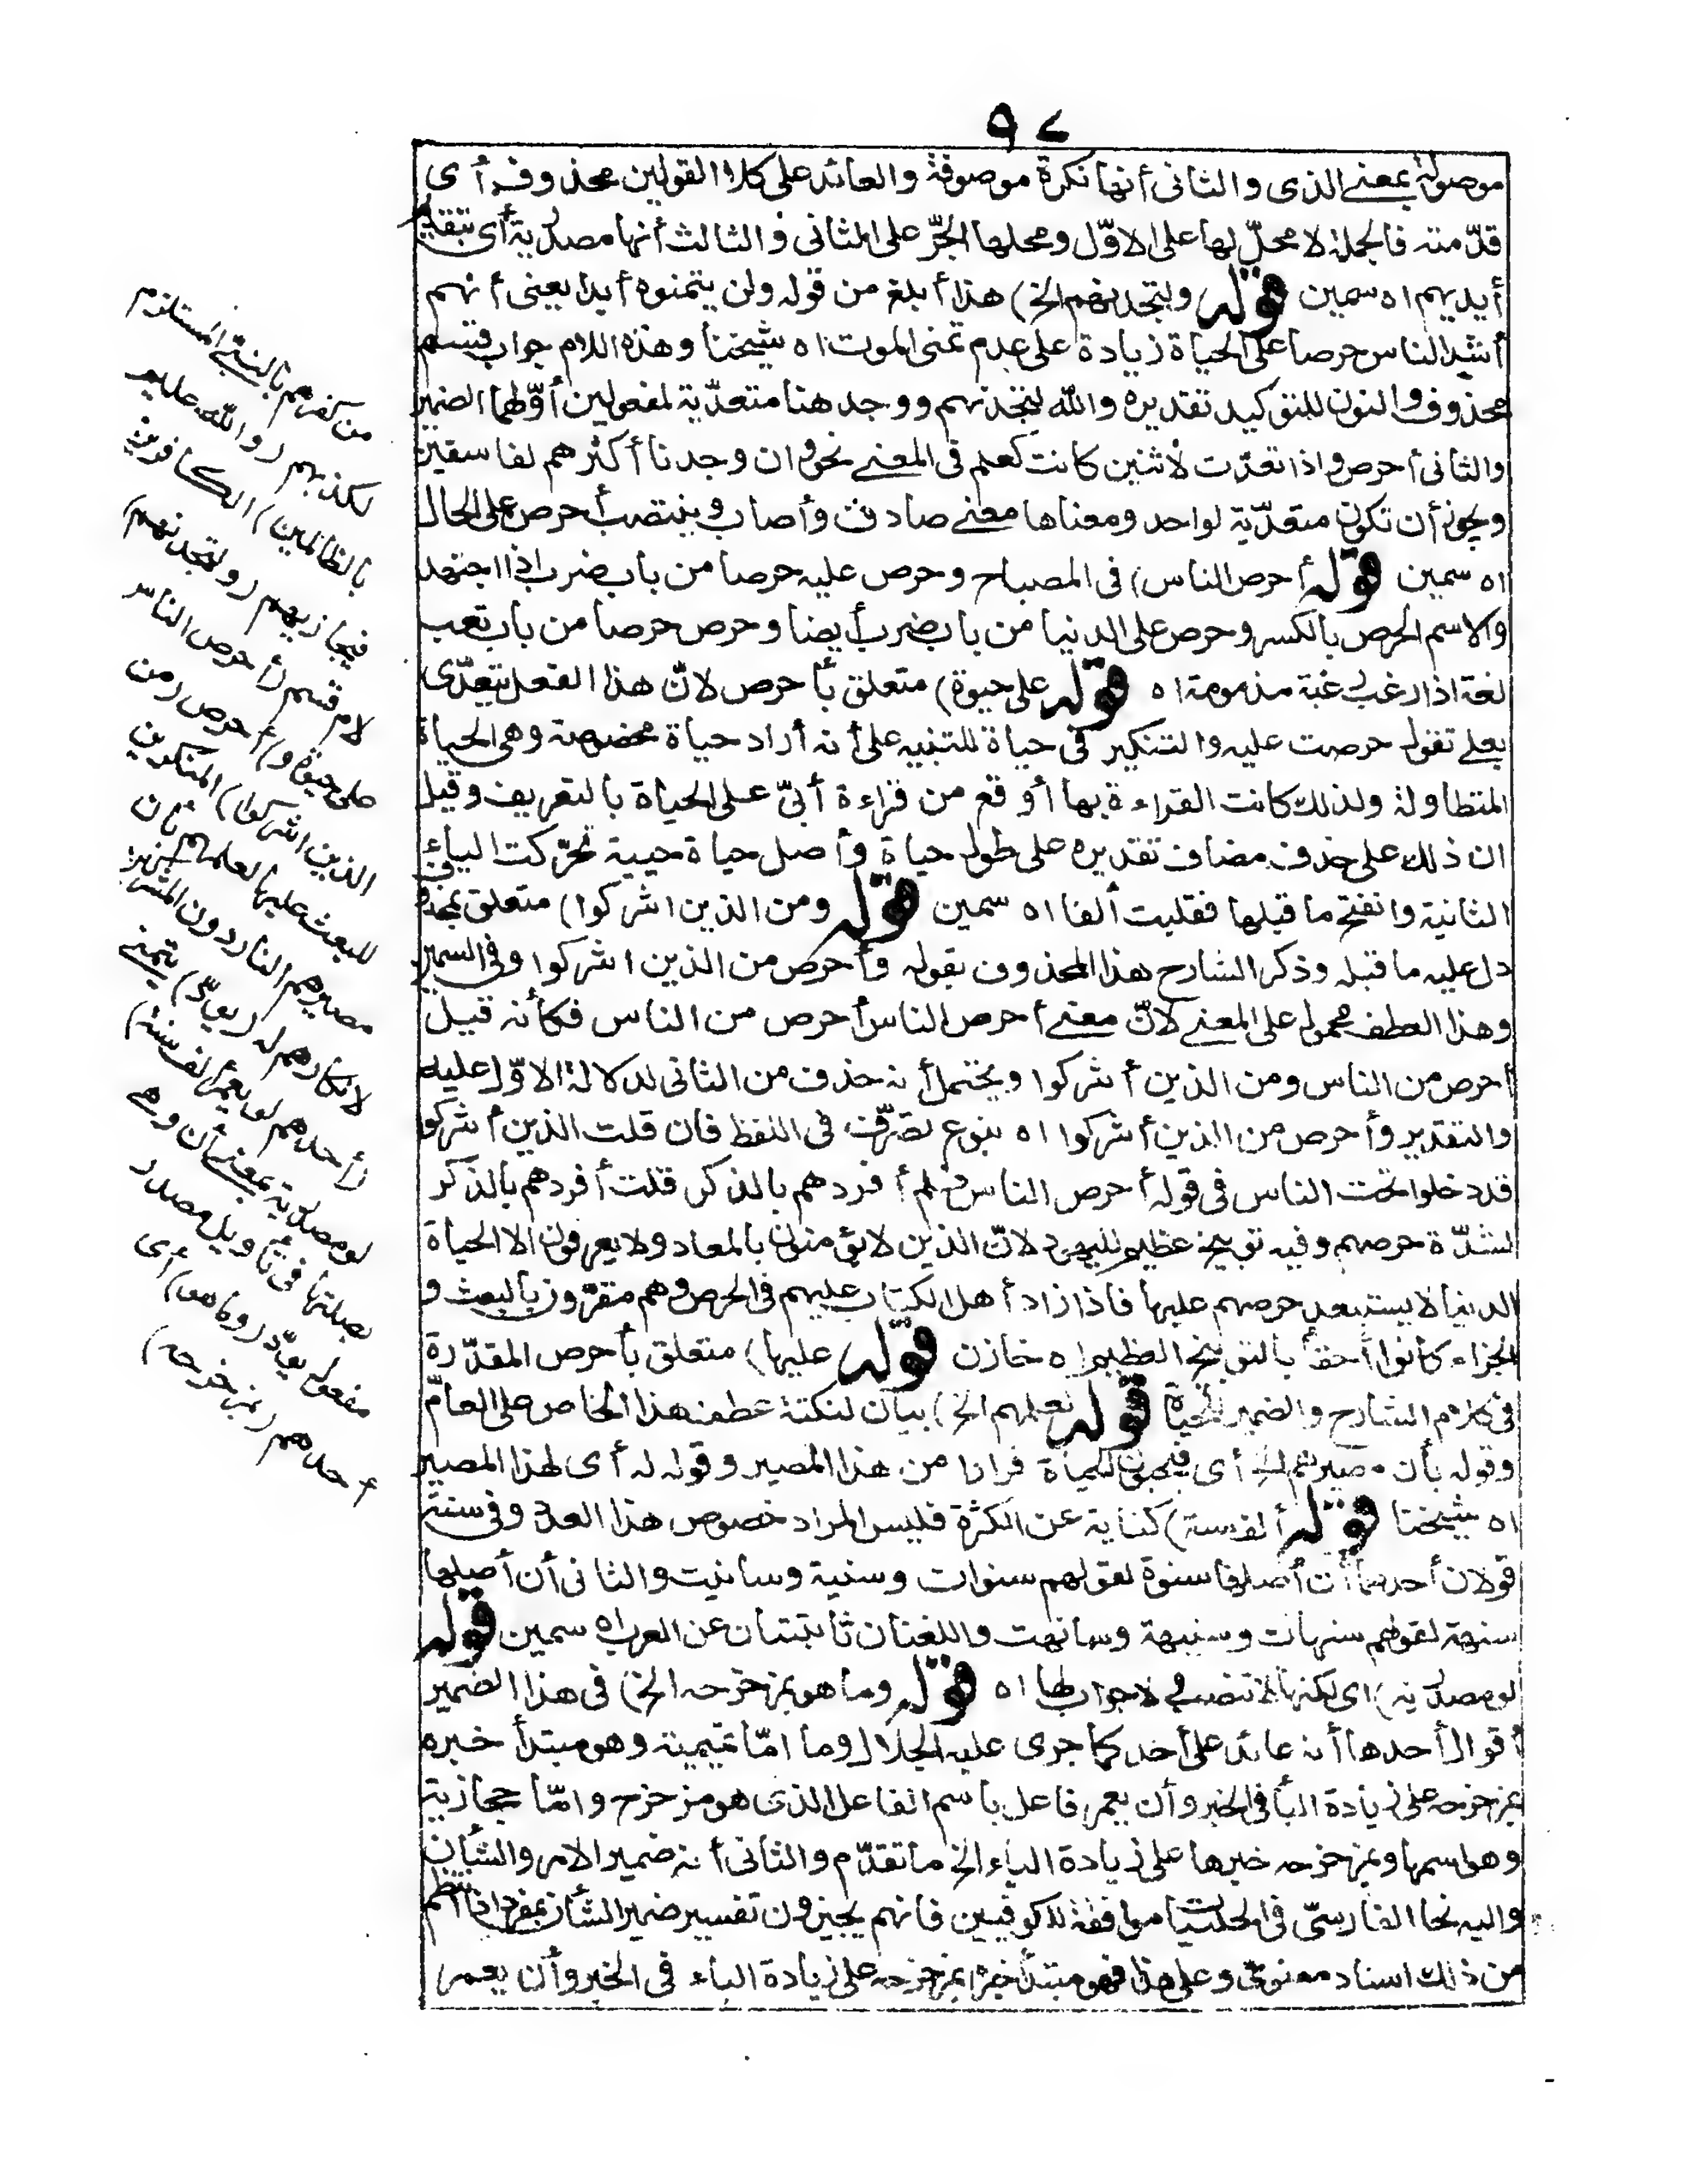 ٩٧
موصولة بمعنى الذى والثانى أنها نكرة موصوفة والعائد على كلا القولين محذوف أى
قدّمته فالجملة لا محلّ لها على الاوّل ومحلها الجرّ على الثانى والثالث أنها مصدرية أى بتقديم
أيديهم اه سمين قوله (ولتجدنهم الخ) هذا أبلغ من قوله ولن يتمنوه أبدا يعنى أنهم
أشد الناس حرصا على الحياة زيادة على عدم تمنى الموت اه شيخنا وهذه اللام جواب قسم
محذوف والنون للتوكيد تقديره والله لتجدنهم ووجد هنا متعدّية لمفعولين أوّلهما الضمير
والثانى أحرص واذا تعدّت لاثنين كانت كعلم فى المعنى نحو وان وجدنا أكثرهم لفاسقين
ويجوز أن تكون متعدّية لواحد ومعناها معنى صادف وأصاب وينتصب أحرص على الحال
اه سمين قوله (أحرص الناس) فى المصباح وحرص عليه حرصا من باب ضرب اذا اجتهد
والاسم الحرص بالكسر وحرص على الدنيا من باب ضرب أيضا وحرص حرصا من باب تعب
لغة اذا رغب رغبة مذمومة اه قوله (على حيوة) متعلق بأحرص لانّ هذا الفعل يتعدّى
بعلى تقول حرصت عليه والتنكير فى حياة للتنبيه على أنه أراد حياة مخصوصة وهى الحياة
المتطاولة ولذلك كانت القراءة بها أوقع من قراءة أبىّ على الحياة بالتعريف وقيل
ان ذلك على حذف مضاف تقديره على طول حياة وأصل حياة حيية تحرّكت الياء
الثانية وانفتح ما قبلها فقلبت ألفا اه سمين قوله (ومن الذين اشركوا) متعلق بمحذوف
دل عليه ما قبله وذكر الشارح هذا المحذوف بقوله وأحرص من الذين اشركوا وفى السمين
وهذا العطف محمول على المعنى لانّ معنى أحرص الناس أحرص من الناس فكأنه قيل
أحرص من الناس ومن الذين أشركوا ويحتمل أنه حذف من الثانى لدلالة الاوّل عليه
والتقدير وأحرص من الذين أشركوا اه بنوع تصرّف فى اللفظ فان قلت الذين أشركوا
قد دخلوا تحت الناس فى قوله أحرص الناس فلم أفردهم بالذكر قلت أفردهم بالذكر
لشدّة حرصهم وفيه توبيخ عظيم لليهود لانّ الذين لا يؤمنون بالمعاد ولا يعرفون الا الحياة
الدنيا لا يستبعد حرصهم عليها فاذا زاد أهل الكتاب عليهم فى الحرص وهم مقرّون بالبعث و
الجزاء كانوا أحق بالتوبيخ العظيم اه خازن قوله (عليها) متعلق بأحرص المقدّرة
فى كلام الشارح والضمير للحياة قوله (لعلمهم الخ) بيان لنكتة عطف هذا الخاص على العامّ
وقوله بأن مصيرهم الخ أى فيحبون الحياة فرارا من هذا المصير وقوله له أى لهذا المصير
اه شيخنا قوله (ألف سنة) كناية عن الكثرة فليس المراد خصوص هذا العدد وفى سنة
قولان أحدهما أن أصلها سنوة لقولهم سنوات وسنية وسانيت والثانى أن أصلها
سنهة لقولهم سنهات وسنيهة وسانهت واللغتان ثابتتان عن العرب اه سمين قوله
(لو مصدرية) اى لكنها لا تنصب ولا جواب لها اه قوله (وما هو بمزحزحه الخ) فى هذا الضمير
أقوال أحدها أنه عائد على أحد كما جرى عليه الجلال وما امّا تميمية وهو مبتدأ خبره
بمزحزحه على زيادة البأ فى الخبر وأن يعمر فاعل باسم الفاعل الذى هو مزحزح وامّا حجازية
وهو اسمها وبمزحزحه خبرها على زيادة الباء الخ ما تقدّم والثانى أنه ضمير الامر والشأن
واليه نحا الفارسىّ فى الحلبيات موافقة للكوفيين فانهم يجيزون تفسير ضمير الشأن بمفرد اذا انتظم
من ذلك اسناد معنوىّ وعلى هذا فهو مبتدأ خبره بمزحزحه على زيادة الباء فى الخبر وأن يعمر
من كفرهم بالنبىّ المستلزم
لكذبهم (والله عليم
بالظالمين) الكافرين
فيجازيهم (ولتجدنهم)
لام قسم (أحرص الناس
على حيوة و) أحرص (من
الذين اشركوا) المنكرين
للبعث عليها لعلمهم بأن
مصيرهم النار دون المشركين
لانكارهم له (يودّ) يتمنى
(أحدهم لو يعمر ألف سنة)
لو مصدرية بمعنى أن وهى
بصلتها فى تأويل مصدر
مفعول يودّ (وما هو) أى
أحدهم (بمزحزحه)